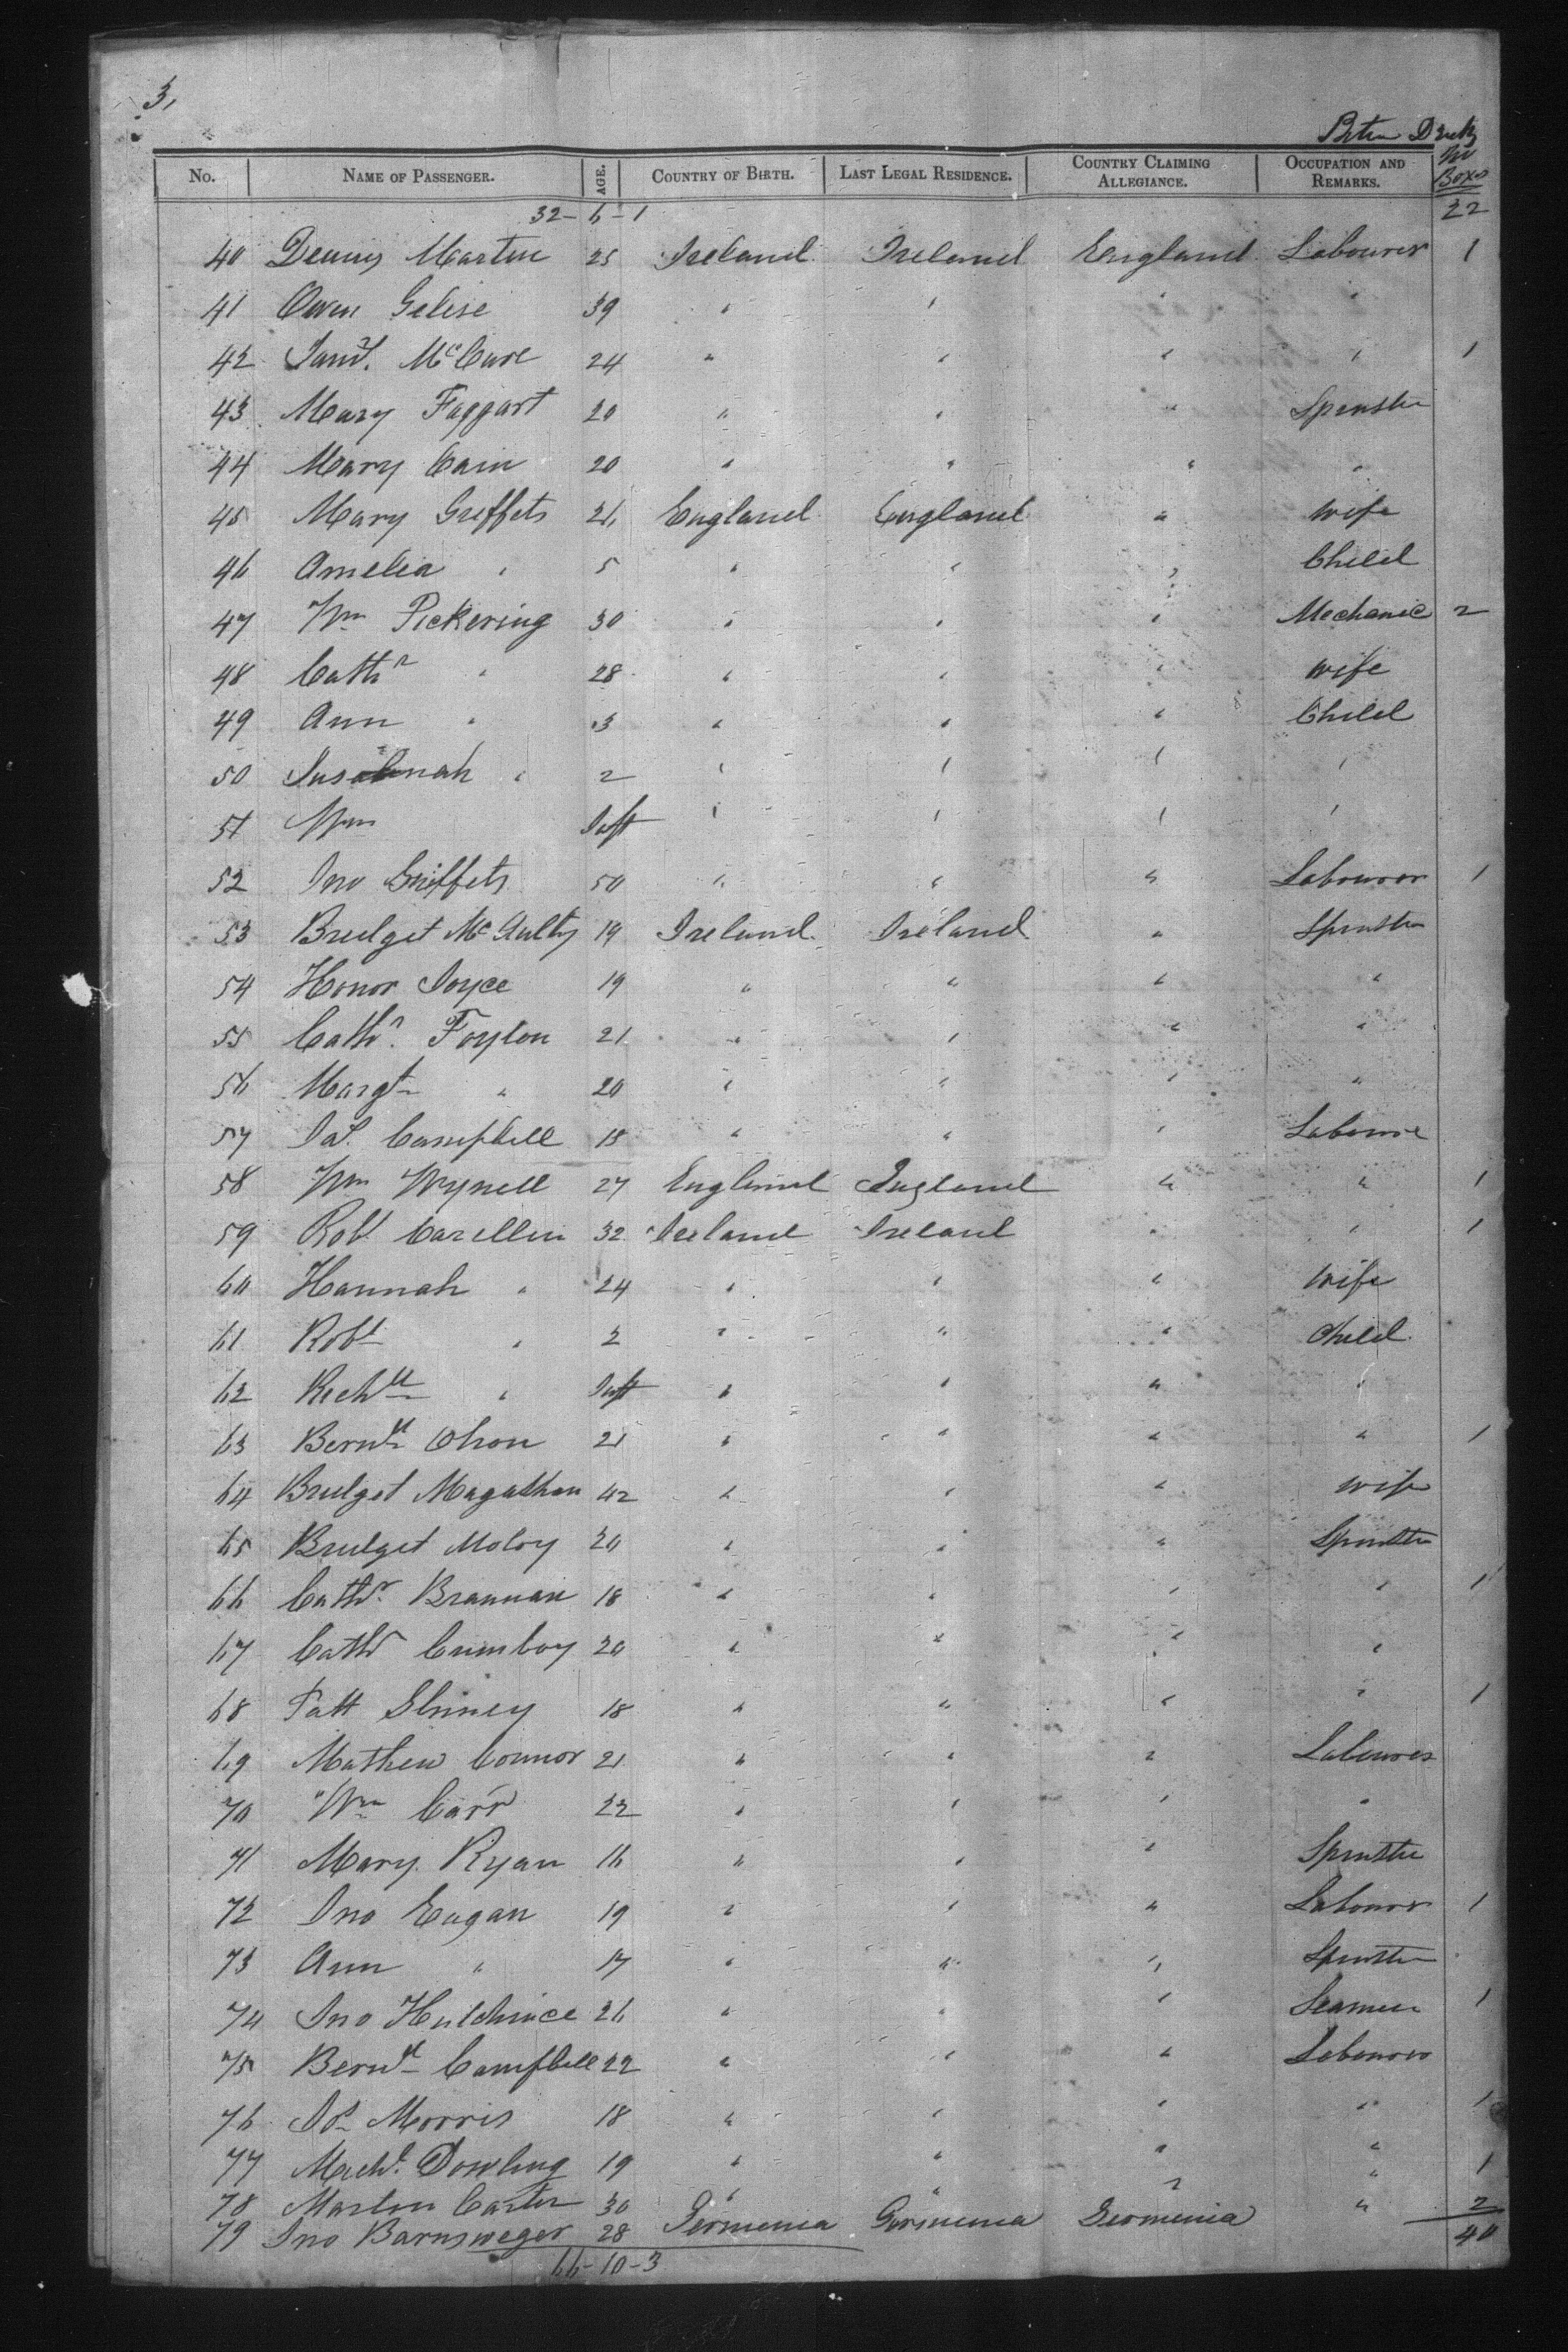 3,
Betn Deck
No. NAME OF PASSENGER. AGE. COUNTRY OF BIRTH. LAST LEGAL RESIDENCE. COUNTRY CLAIMING ALLEGIANCE. OCCUPATION AND REMARKS. No Boxes
32-6-1 22
40 Dennis Martin 25 Ireland Ireland England Labourer 1
41 Owen 39 " " " "
42 McCure 24 " " " " 1
43 Mary Taggart 20 " " " Spinster
44 Mary Cain 20 " " " "
45 Mary Griffets 26 England England " Wife
46 Amelia " 5 " " " Child
47 Wm Pickering 30 " " " Mechanic 2
48 Cathn " 28 " " " Wife
49 Ann " 3 " " " Child
50 Susannah " 2 " " " "
51 Wm Inft " " " "
52 Jno Griffets 50 " " " Labourer 1
53 Bridget McAulty 19 Ireland Ireland " Spinster
54 Honor Joyce 19 " " " "
55 Cathn Foylon 21 " " " "
56 Margt " 20 " " " "
57 Jas. Campbell 18 " " " Labourer
58 Wm Wynell 27 England England " " 1
59 Robt Carellin 32 Ireland Ireland " " 1
60 Hannah " 24 " " " Wife
61 Robt " 2 " " " Child
62 Richd " Inft " " " "
63 Bernd 21 " " " " 1
64 Bridget Magathan 42 " " " Wife
65 Bridget Moloy 20 " " " Spinster
66 Cathn Brannan 18 " " " " 1
67 Cathn Cumboy 20 " " " "
68 Patt Sliney 18 " " " " 1
69 Mathew Connor 21 " " " Labourer
70 Wm Carr 22 " " " "
71 Mary Ryan 16 " " " Spinster
72 Jno Eagan 19 " " " Labourer 1
73 Ann " 17 " " " Spinster
74 Jno Hutchince 26 " " " Seaman 1
75 Bernd Campbell 22 " " " Labourer
76 Jos Morris 18 " " " " 1
77 Michl. Dowling 19 " " " " 1
78 Martin Carter 30 " " " " 2
79 Jno Barnsweger 28 Germenia Germenia Germenia 40
66-10-3